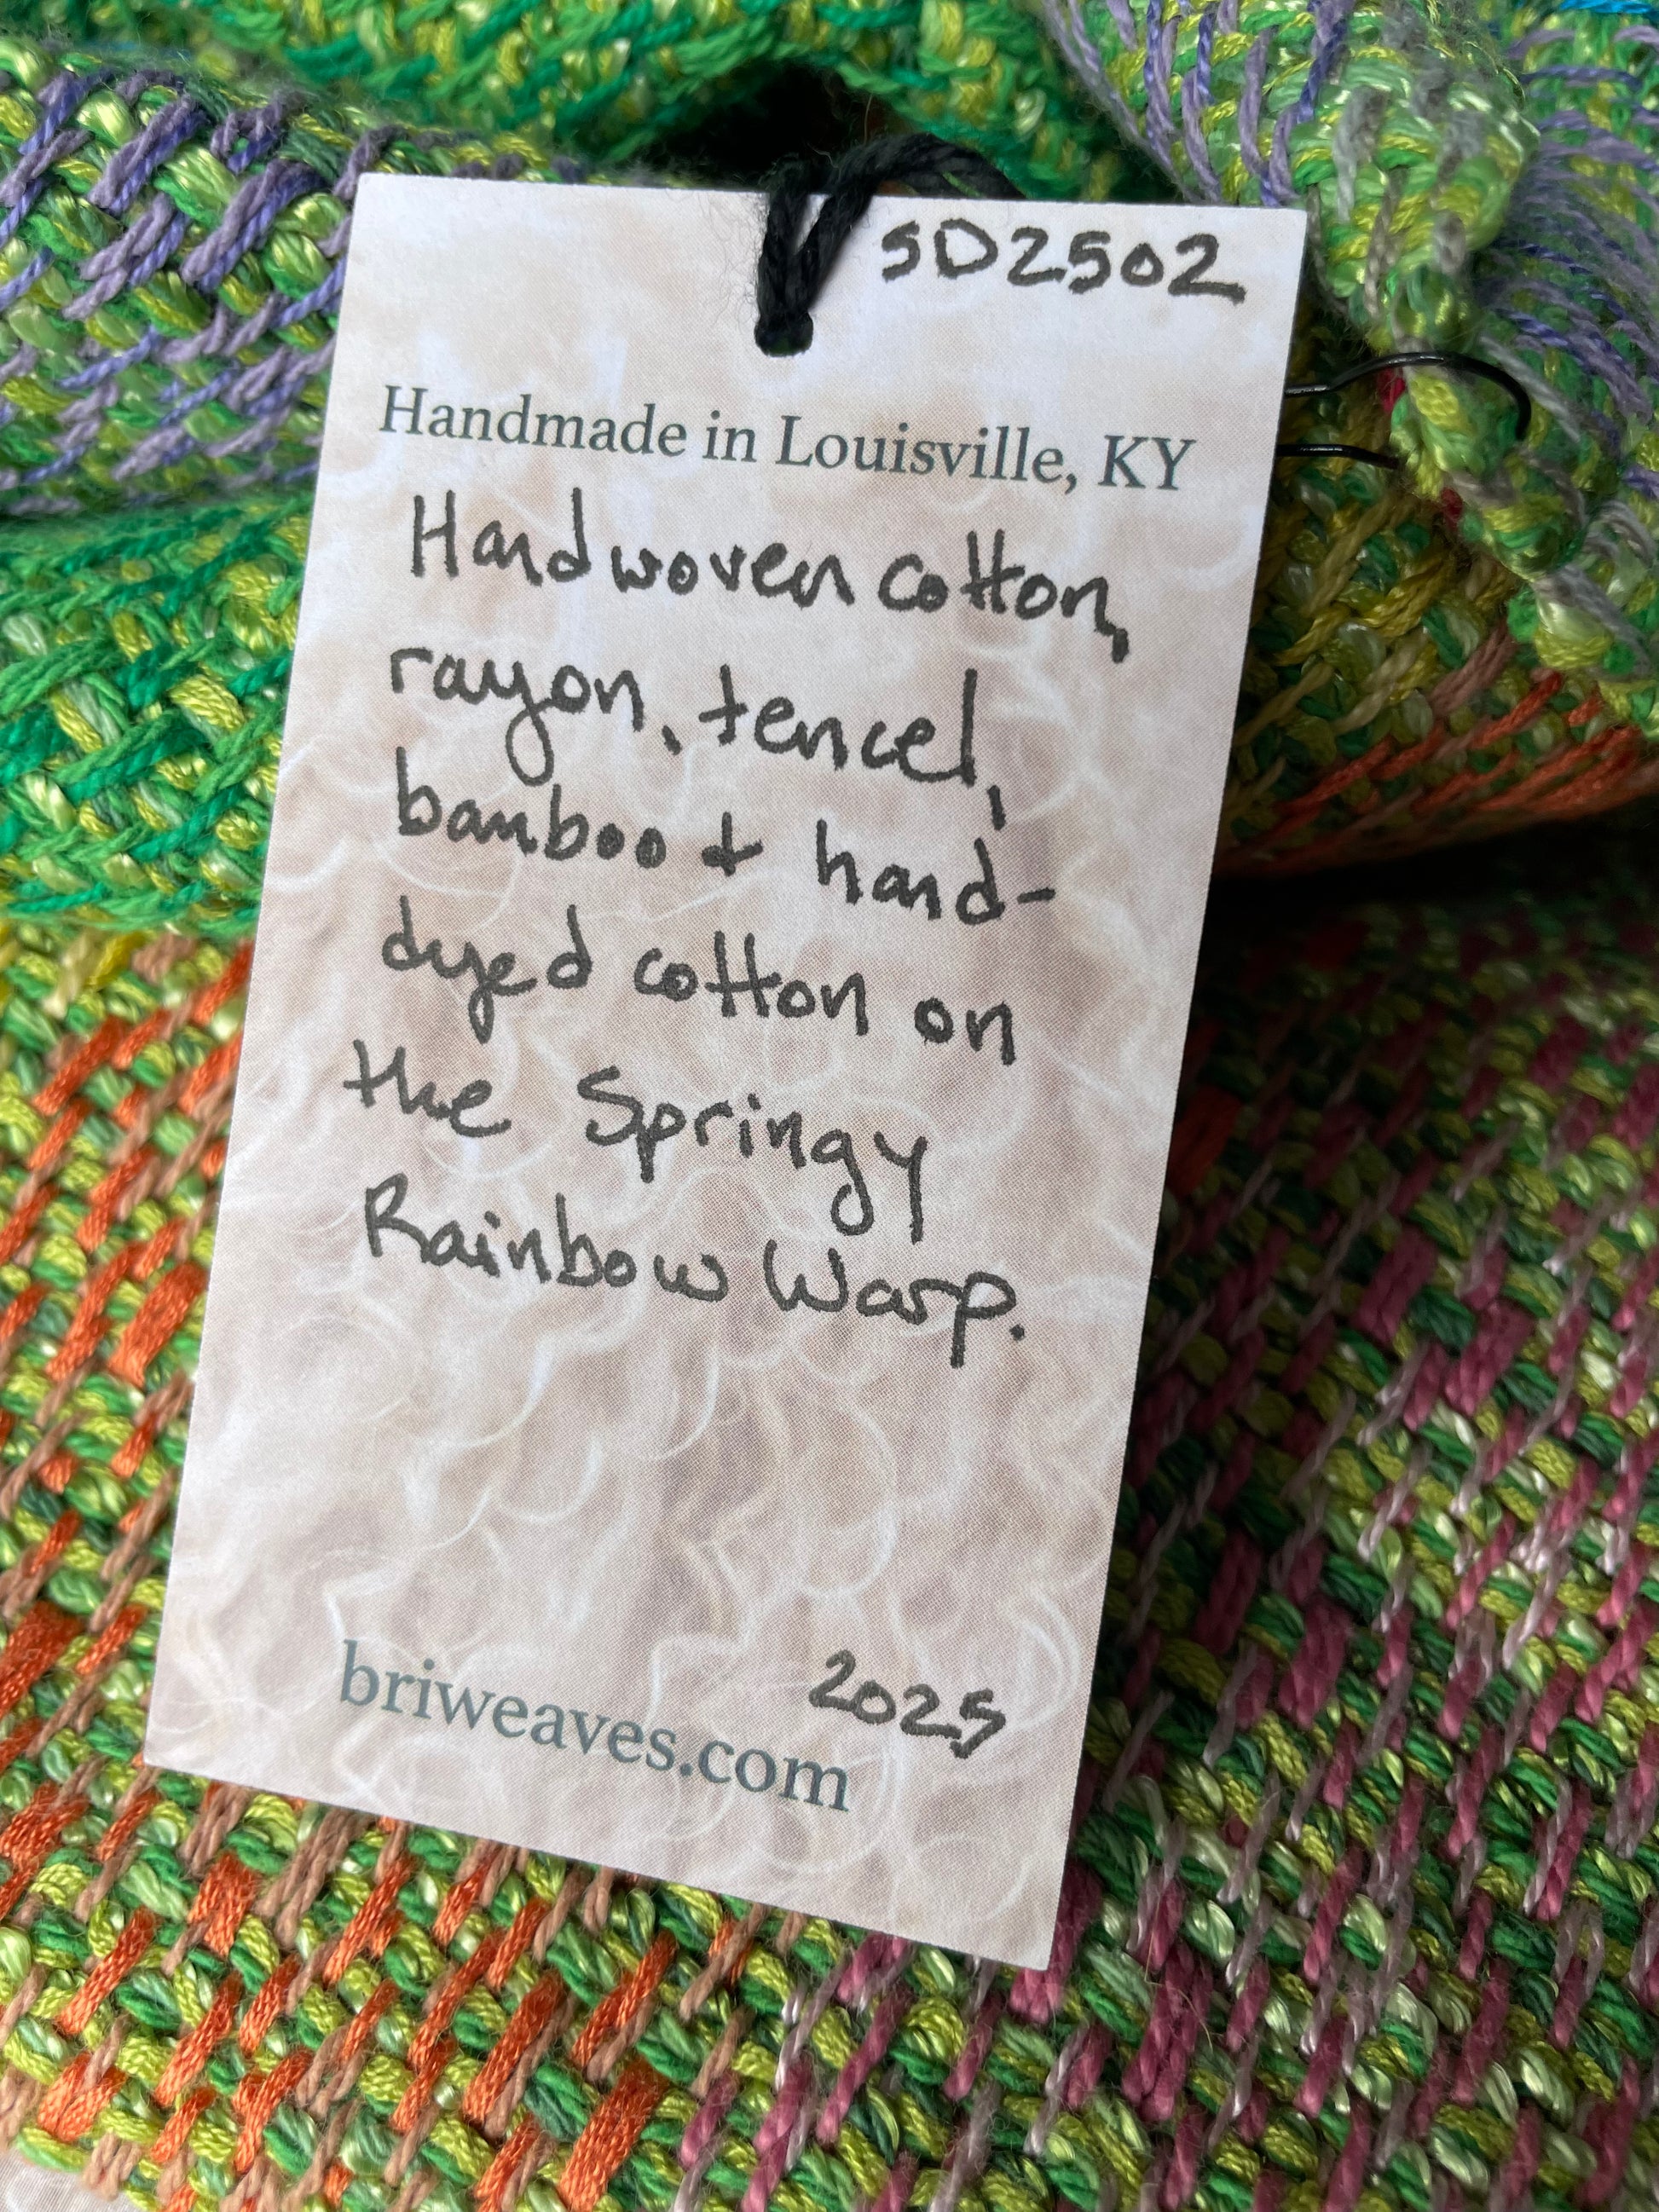 SD2502
Handmade in Louisville, KY
Handwoven cotton,
rayon, tencel,
bamboo + hand-
dyed cotton on
the Springy
Rainbow Warp.
2025
briweaves.com